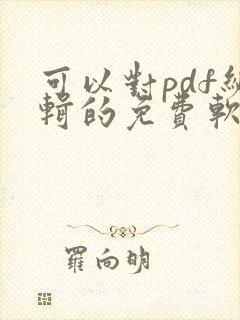 可以對pdf編
輯的免費軟
羅向明